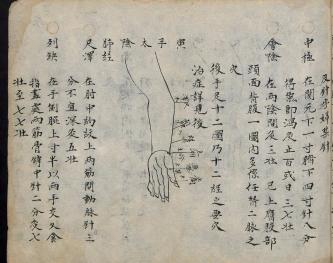 中極
在關元下一寸臍下四寸針八分
得氣即瀉灸止百或日三七壯
會陰
在兩陰間灸三壯 已上腹部
頭面背腹一圖內多係任督二脉之
穴
後手足十二圖乃十二經之要穴
治症詳見後
手太陰
肺經
尺澤
在肘中約紋上兩筋間動脉針三
分不宜深灸五壯
列缺
在手側腕上寸半以兩手交叉食
指盡處兩筋骨罅中針二分灸七
壯至七七壯